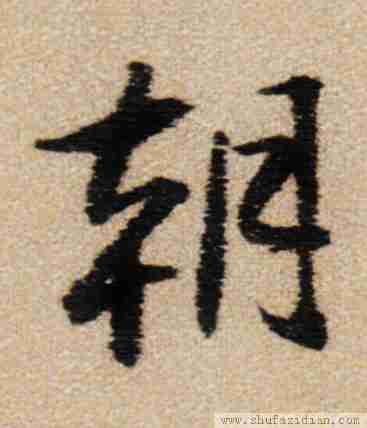 朝
www.shufazidian.com